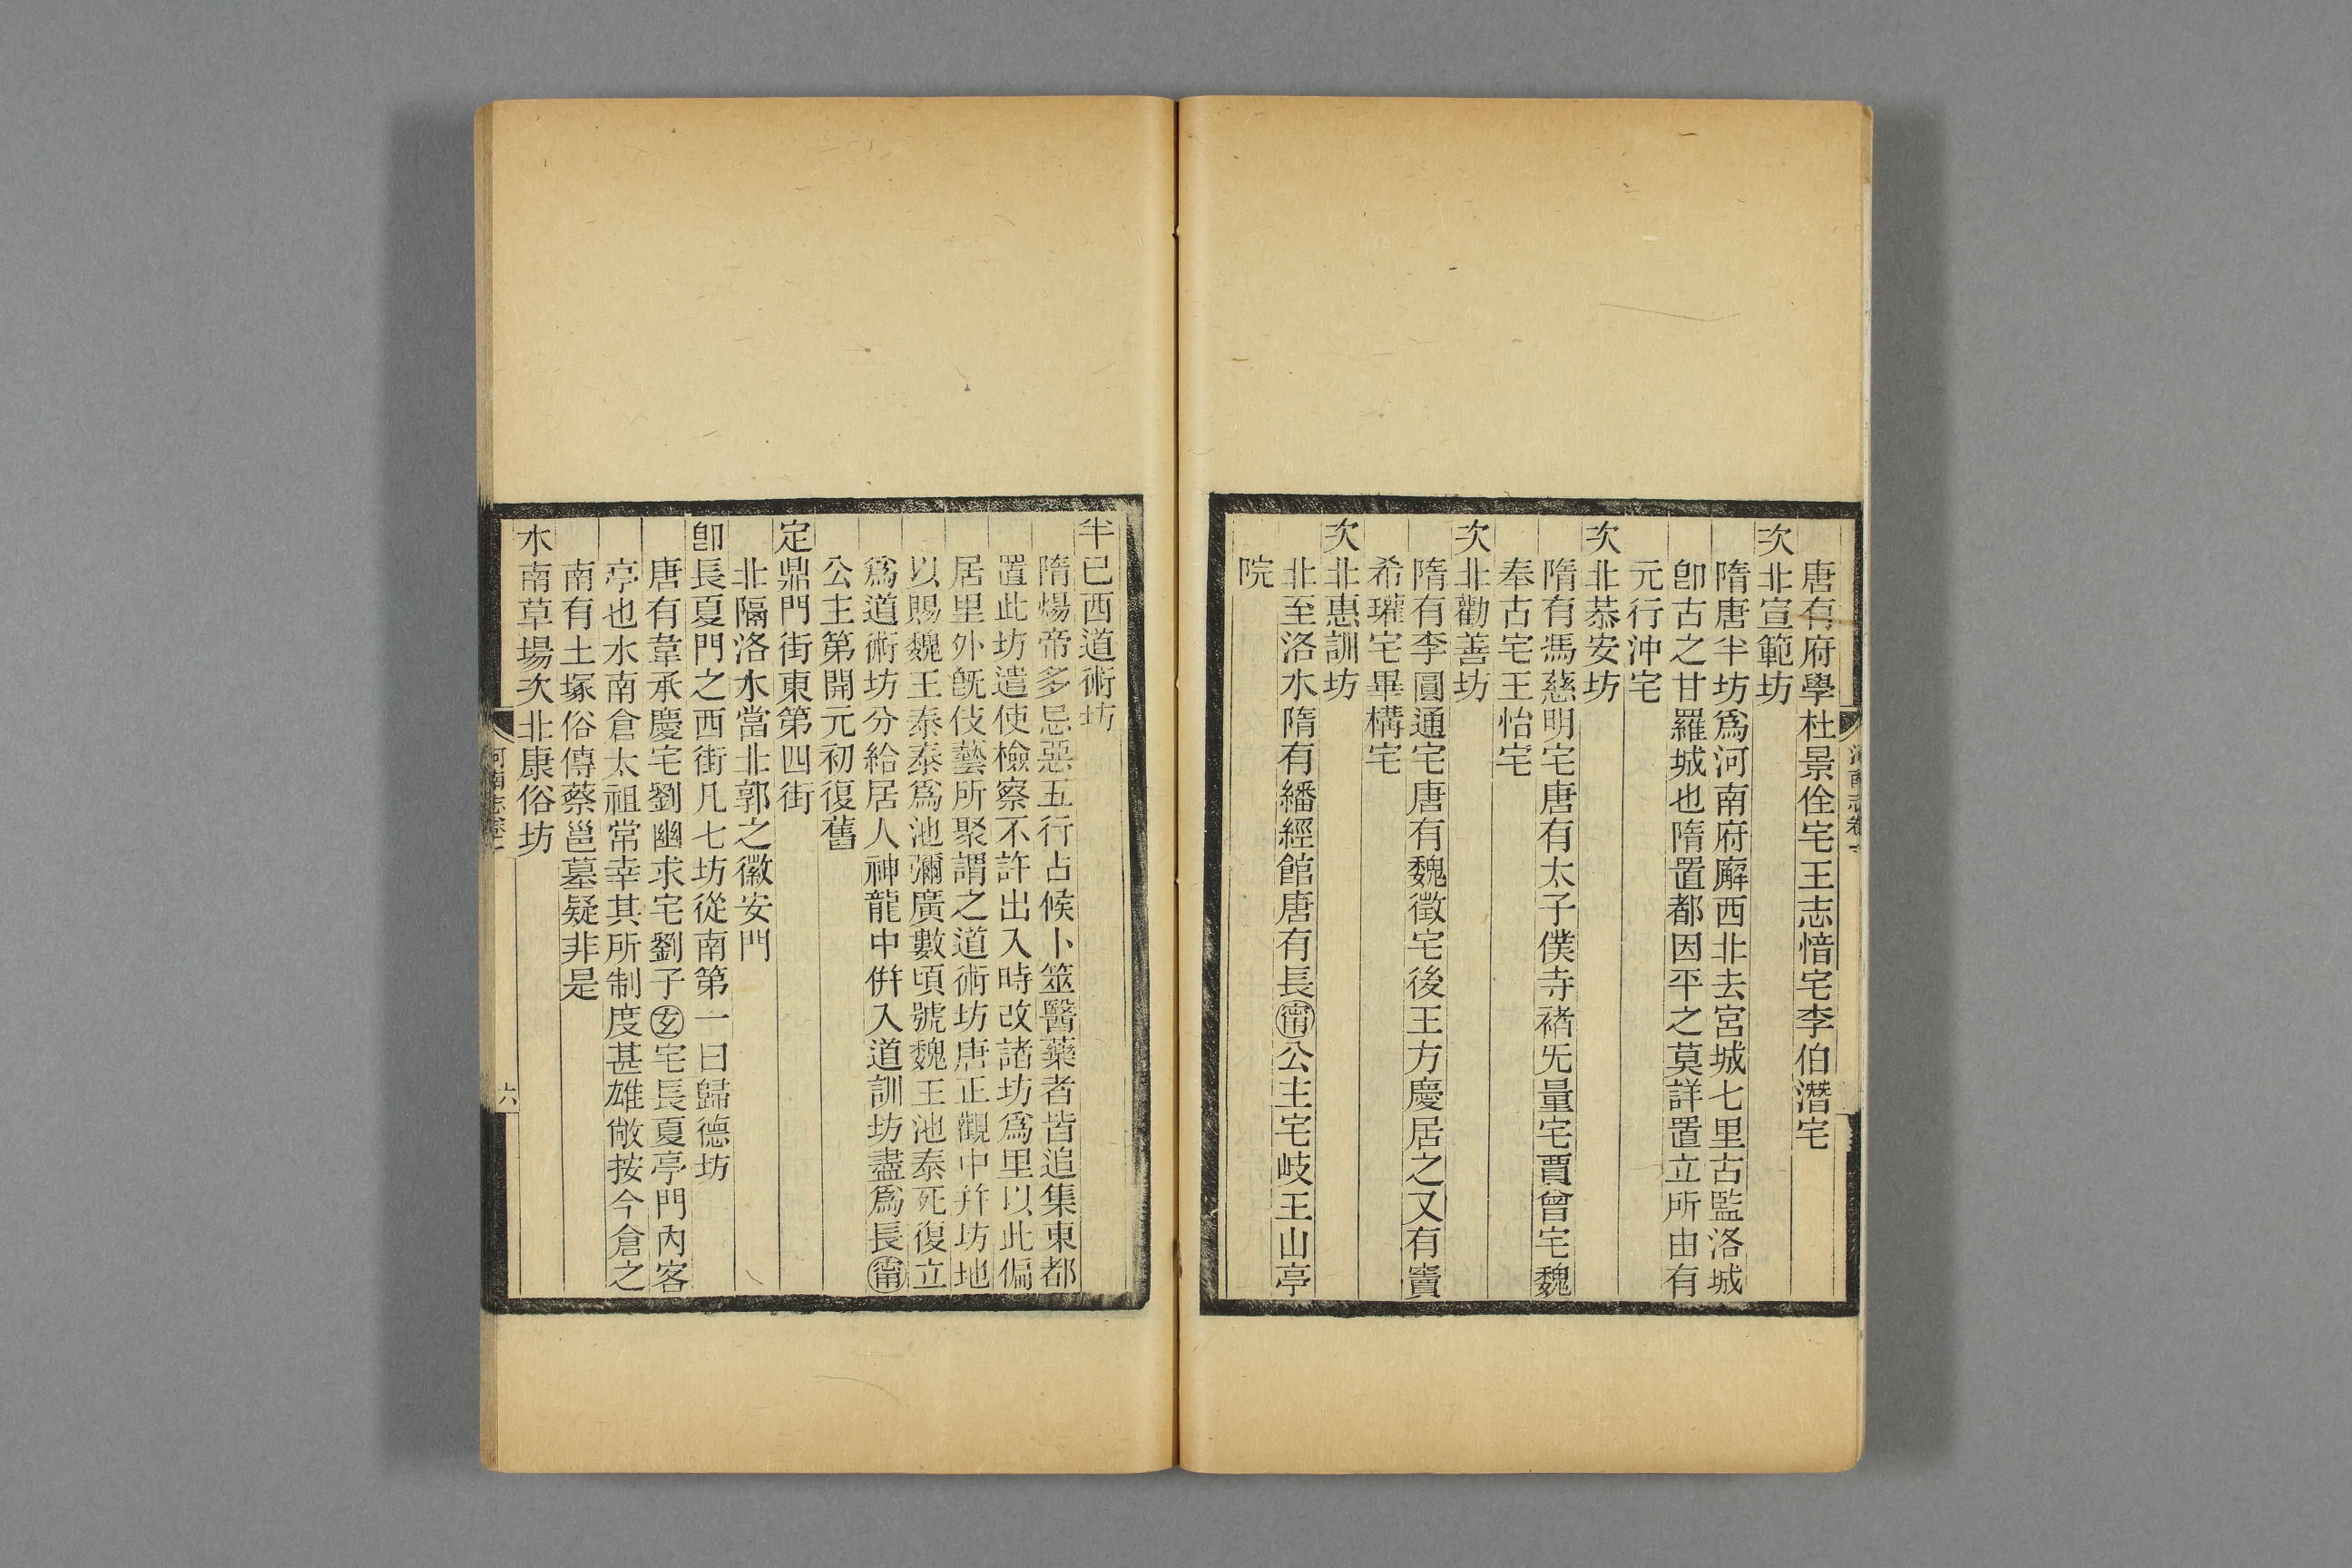 唐有府學杜景佺宅王志愔宅李伯潛宅
次北宣範坊
隋唐半坊爲河南府廨西北去宮城七里古監洛城
卽古之甘羅城也隋置都因平之莫詳置立所由有
元行沖宅
次北恭安坊
隋有馮慈明宅唐有太子僕寺褚旡量宅賈曾宅魏
奉古宅王怡宅
次北勸善坊
隋有李圓通宅唐有魏徵宅後王方慶居之又有竇
希瓘宅畢構宅
次北惠訓坊
北至洛水隋有繙經館唐有長甯公主宅岐王山亭
院
半已西道術坊
隋煬帝多忌惡五行占候卜筮醫藥者皆追集東都
置此坊遣使檢察不許出入時改諸坊爲里以此偏
居里外旣伎藝所聚謂之道術坊唐正觀中幷坊地
以賜魏王泰泰爲池彌廣數頃號魏王池泰死復立
爲道術坊分給居人神龍中併入道訓坊盡爲長甯
公主第開元初復舊
定鼎門街東第四街
北隔洛水當北郭之徽安門
卽長夏門之西街凡七坊從南第一曰歸德坊
唐有韋承慶宅劉幽求宅劉子玄宅長夏亭門內客
亭也水南倉太祖常幸其所制度甚雄敞按今倉之
南有土塚俗傳蔡邕墓疑非是
水南草場次北康俗坊
河南志卷一
六